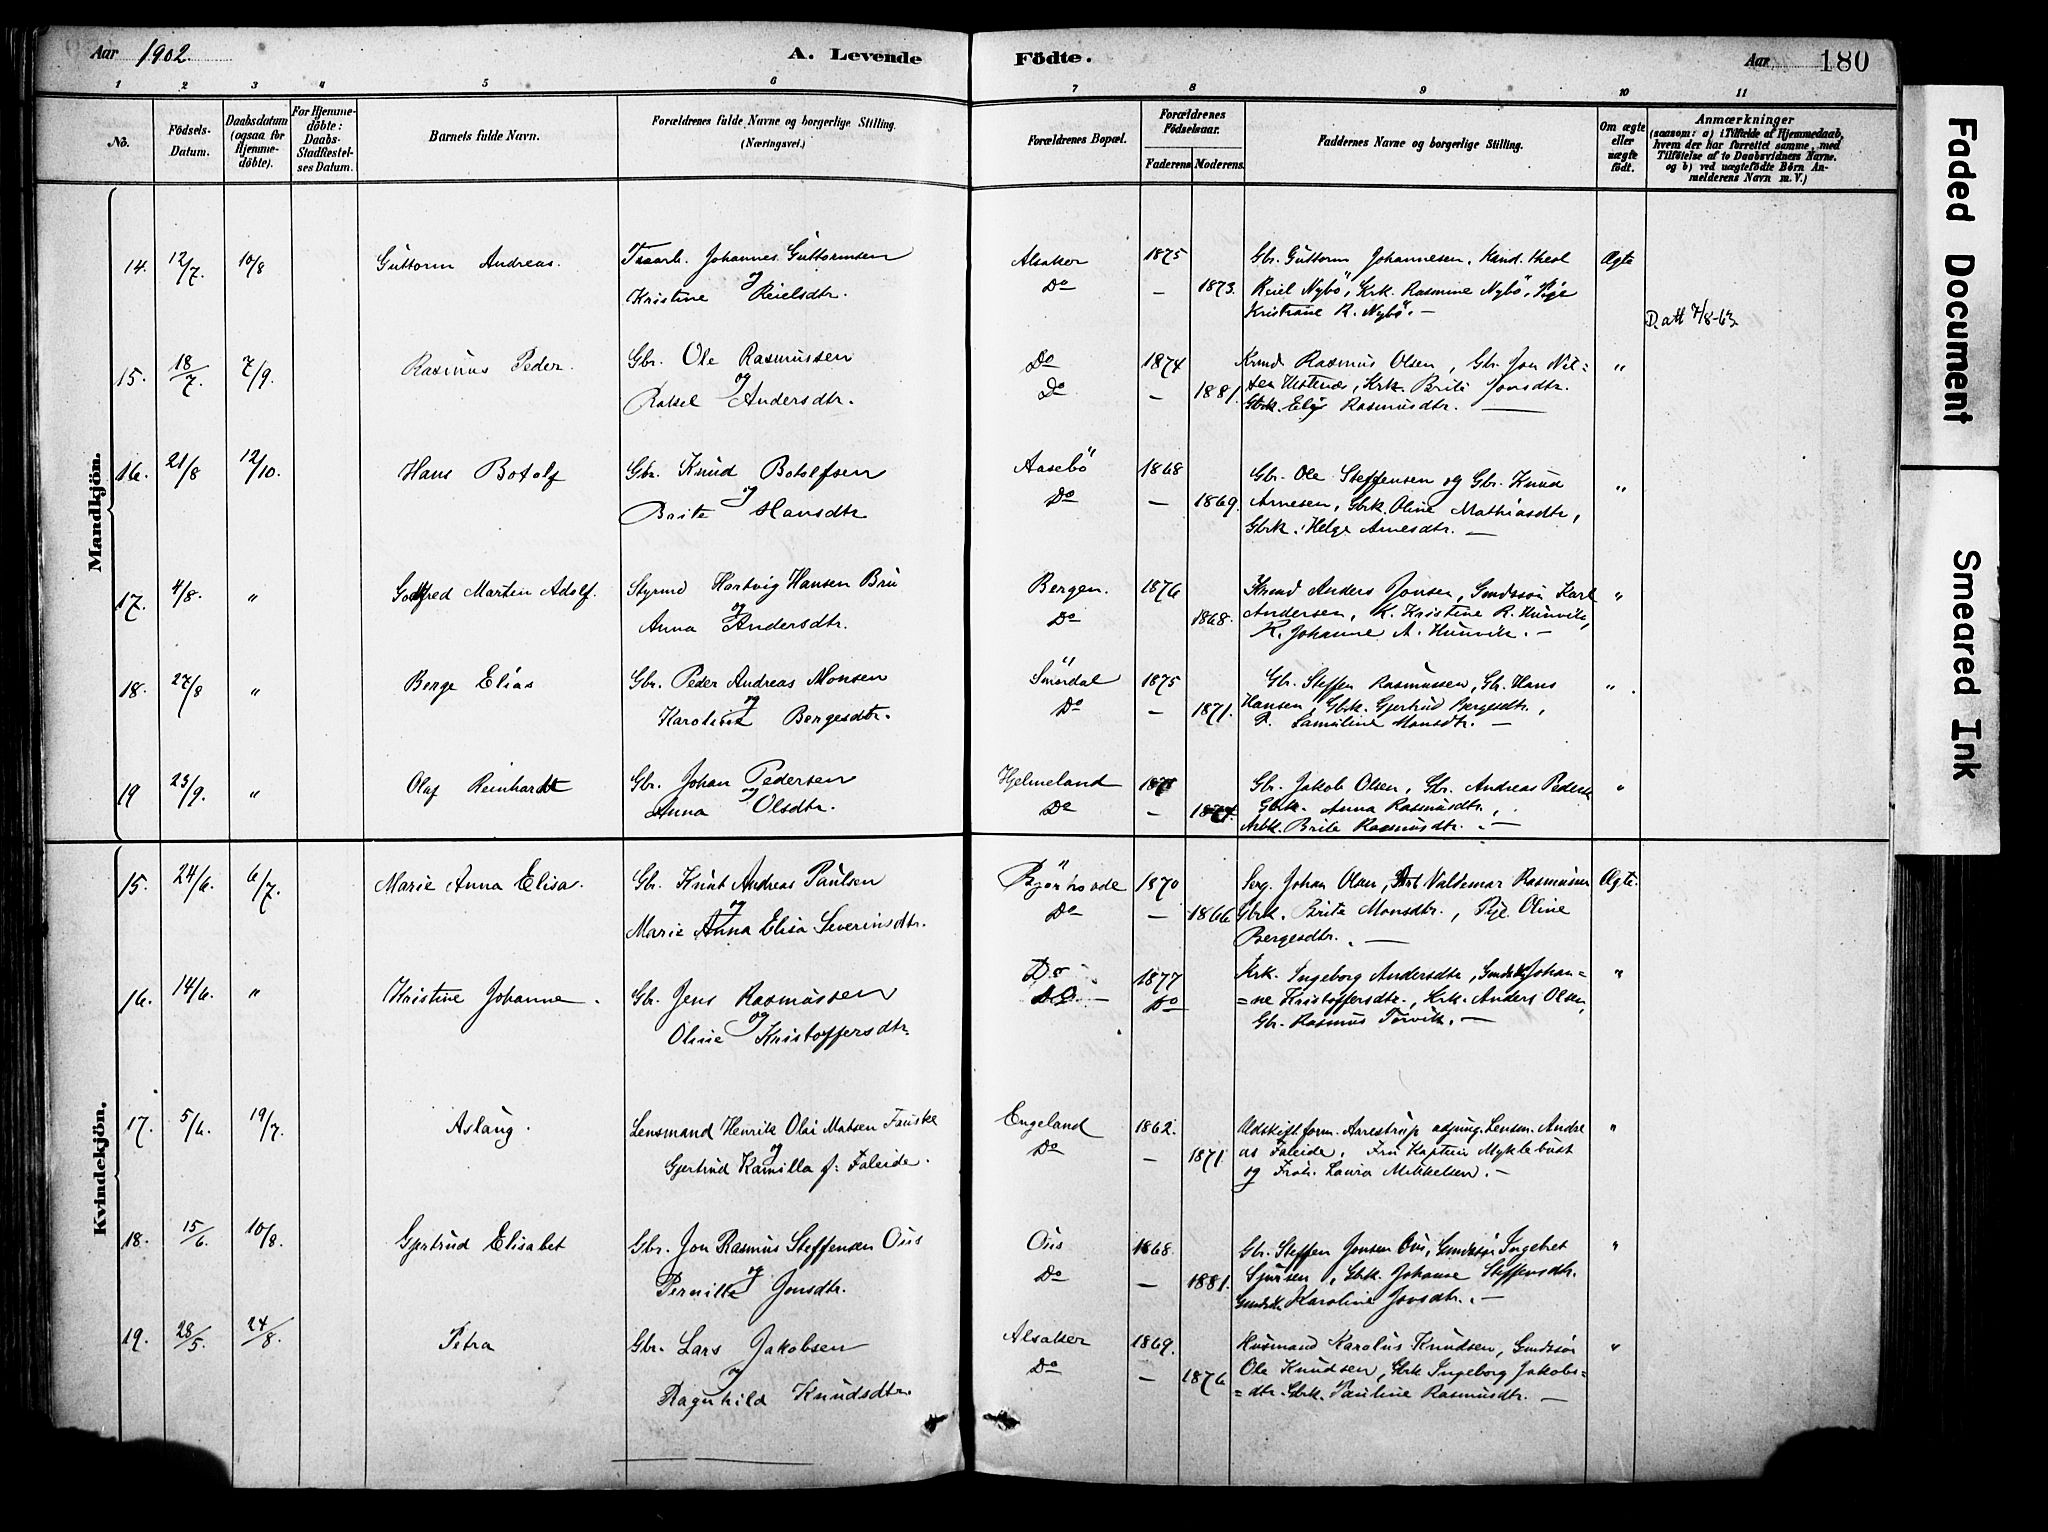 Aar 1902.
A. Levende Födte.
Aar 180
1 2 3 4 5 6 7 8 9 10 11
No.
Födsels-Datum.
Daabsdatum (ogsaa for Hjemme-döbte).
For Hjemme-döbte: Daabs-Stadfæstel-ses Datum.
Barnets fulde Navn.
Forældrenes fulde Navne og borgerlige Stilling. (Næringsvei.)
Forældrenes Bopæl.
Forældrenes Födselsaar.
Faderens. Moderens.
Faddernes Navne og borgerlige Stilling.
Om ægte eller uægte födt.
Anmærkninger
(saasom: a) i Tilfælde af Hjemmedaab, hvem der har forrettet samme, med Tilföielse af to Daabsvidners Navne. og b) ved uægtefödte Börn An-melderens Navn m. V.)
Mandkjön.
14. 12/7. 10/8 Guttorm Andreas. Johannes Guttormsen Alsaker 1875 Gbr. Guttorm Johannesen, Kand. theol Ægte
og
Kristine Reielsdtr. Do — 1873. Reiel Nybö, Krk. Rasmine Nybö,
Kristiane R. Nybö. —
D. att 7/8-63
15. 18/7. 7/9. Rasmus Peder. Gbr. Ole Rasmussen Do 1874 Rasmus Olsen, Gbr. Jon Nil=
og
Rakel Andersdtr. Do — 1881. sen Hestenes, Krk. Brite Jonsdtr. "
Gbrk. Rasmusdtr. —
16. 21/8 12/10. Hans Botolf Gbr. Knud Botolfsen Aasebö 1868 Gbr. Ole Steffensen og Gbr. Knud
og
Brite Hansdtr Do — 1869. Arnesen, Gbrk. Oline Mathiasdtr, "
Gbrk. Helge Arnesdtr. —
17. 4/8. " Gotfred Marten Adolf. Styrmd Hartvig Hansen Bru Bergen. 1876 Anders Jonsen, Gmdssön Karl "
og
Anna Andersdtr. Do — 1868. Andersen, K. Kristine R. Hunvik,
K. Johanne A. Hunvik. —
18. 27/8 " Berge Elias Gbr. Peder Andreas Monsen Smördal 1875 Gbr. Steffen Rasmussen, Gb. Hans "
og
Karoline Bergesdtr. Do — 1871. Hansen, Gbrk. Gjertrud Bergesdtr.,
P. Samuline Monsdtr. —
19 23/9. " Olaf Reinhardt Gbr. Johan Pedersen Hjelmeland Gbr. Jakob Olsen, Gbr. Andreas "
og
Anna Olsdtr. Do — Gbrk. Anna Rasmusdtr.,
Arbk. Brite Rasmusdtr. —
Kvindekjön.
15. 24/6. 6/7. Marie Anna Elisa. Gbr. Knut Andreas Paulsen Björhovde 1870 Serg. Johan Olsen, Valdemar Rasmussen Ægte.
og
Marie Anna Elisa Severinsdtr. Do — 1866 Gbrk. Brite Monsdtr., Oline
Bergesdtr. —
16. 14/6. " Kristine Johanne. Gbr. Jens Rasmussen Do 1877 Krk. Ingeborg Andersdtr, Johan= "
og
Oline Kristoffersdtr. Do — Do =ne Kristoffersdtr., Krk. Anders Olsen,
Gbr. Rasmus Torvik. —
17. 5/6. 19/7. Aslaug. Lensmand Henrik Olai Matsen Fauske Engeland 1862. Udskiftform. Aarestrup adjung. Lensm. Andre "
og
Gjertrud Kamilla f: Faleide. Do — 1871 as Faleide, Fru Kaptein Myklebust
og Frøk. Laura Mikkelsen. —
18. 15/6. 10/8. Gjertrud Elisabet Gbr. Jon Rasmus Steffensen Ous Ous 1868. Gbr. Steffen Jonsen Ous, Gmdssön Ingebret "
og
Pernille Jonsdtr. Do — 1881. Sjursen, Gbrk. Johanne Steffensdtr.
Karoline Jonsdtr. —
19. 28/5. 24/8. Petra Gbr. Lars Jakobsen Alsaker 1869. Husmand Karolus Knudsen, Gmdssön "
og
Ragnhild Knudsdtr. Do — 1876 Ole Knudsen, Gbrk Ingeborg Jakobs=
=dtr. Gbrk. Pauline Rasmusdtr. —
Faded Document
Smeared Ink